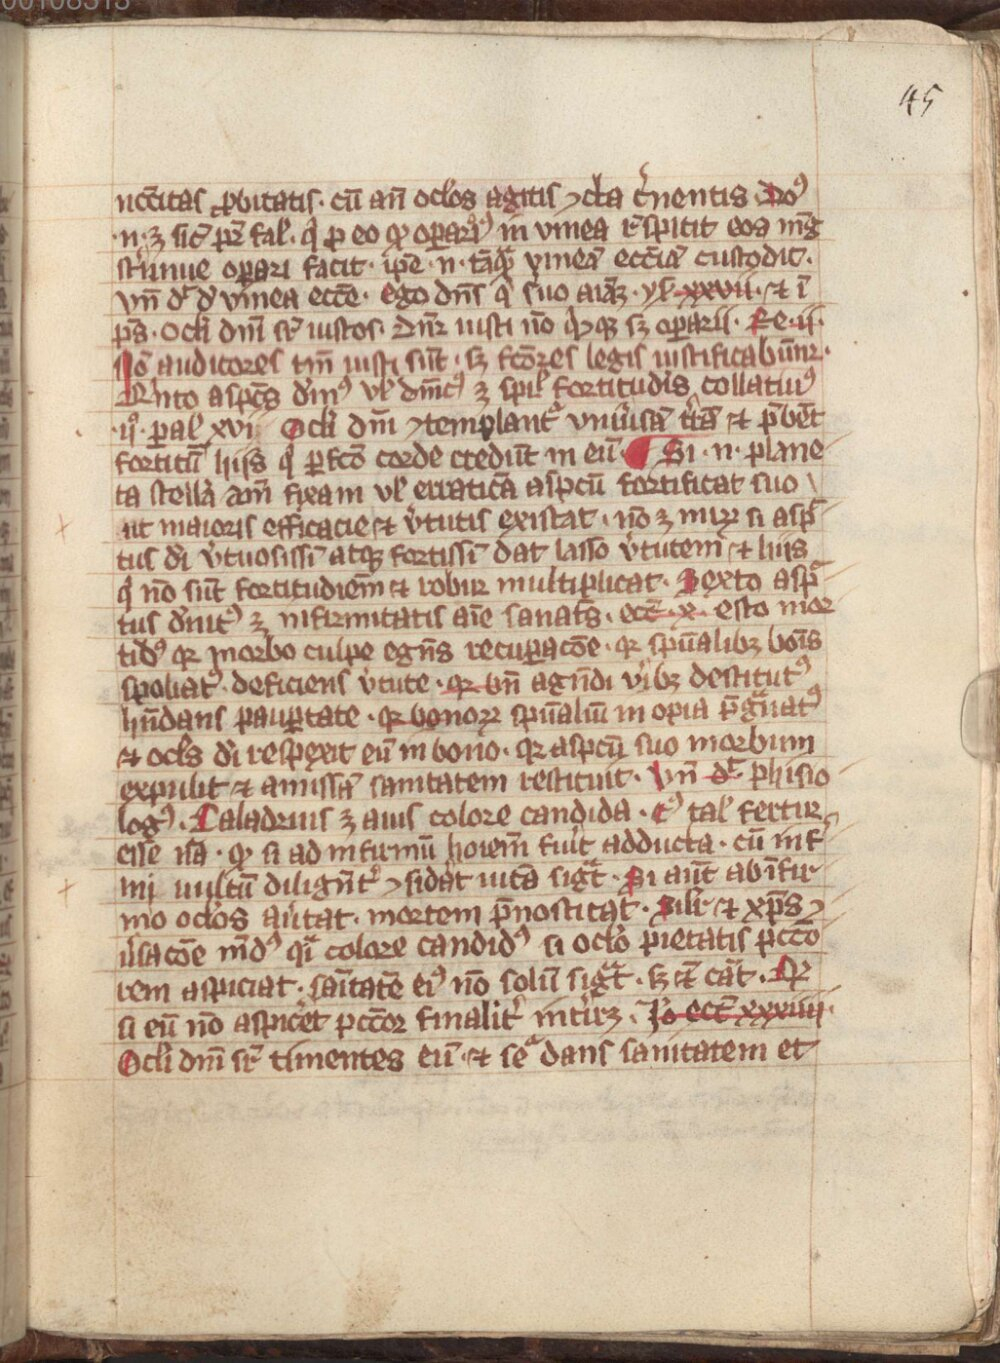 00108313
45
nccitas ꝓbitatis · cū añ oclos agitis ꝯcta c̓nentis
·n· ꝫ sic̄ pr̄ fal̄ · q̓ ꝓ eo ꝙ oꝑari⁹ in vinea respicit eos
oꝑari facit · ip̄e ·n· tāq̃ vineā eccīā custodit ·
vn̄ dr̄ d̓ vinea ecc̄e · ego dn̄s q̓ · xxvii · ⁊ ī
ps̄ · Ocli dn̄i sr̄ iustos · Dn̄r iusti nō sꝫ oꝑarii · Ro · ii ·
Nō auditores tm̄ iusti sūt · sꝫ fcōres legis iustificabūnt̄ ·
Q̓nto aspc̄s d̓in⁹ vl̄ dn̄ic⁹ ꝫ fortitudīs collatiu⁹
·ii· ꝑal xvi · Ocli dn̄i ꝯtemplant̄ vniu̓sā t̄rā ⁊ p̄bēt
fortitū hiis q̓ ꝑfcō corde credūt in eū · Si ·n· plane
ta stellā am̄ fixam vl̄ erraticā aspcū fortificat suo
ut maioris efficacie ⁊ v̓tutis existat · nō ꝫ mirꝝ si asp̄
tus d̓i v̓tuosissī atqꝫ fortissī dat lasso v̓tutem ⁊ hiis
q̓ nō sūt fortitudiem̄ ⁊ robur multiplicat · Sexto asp̄
tus d̓nic⁹ ꝫ infirmitatis aīe sanat̄s · ecc̄ · x · esto mor
tid⁹ qr morbo culpe egn̄s recuꝑacōe · qr spūalibꝫ bonīs
spoliat⁹ · deficiens v̓tute · qr vn̄ agn̄di v̓ibꝫ destitut⁹
hn̄dans pauꝑtate · qr bonoꝝ spūaliū in opia p̄g̓uat⁹
⁊ ocls d̓i respexit eū in bono · qr aspcū suo morbum
expulit ⁊ amissā sanitatem restituit · Vn̄ dr̄ phisio
log⁹ · Caladrius ꝫ auis colore candida · c⁹ tal̄ fertur
esse nā · ꝙ si ad infirmū hoiem̄ fuit adducta · cū infr̄
mi uultū dilignt̄ ꝯsid̓at uitā sigt̄ · Si aūt ab infir
mo oclos au̓tat · mortem p̄nosticat · Silr̄ ⁊ xp̄s ꝯ
u̓sacōe mūd⁹ q̓i colore candid⁹ si oclo pietatis pcc̄o
rem aspiciat · sāitatē ei⁹ nō solū sigt̄ · sꝫ ⁊ cāt · Qr
si eū nō aspicēt pccōr finalit̓ · Iō ecc̄ xxxiiii ·
Ocli dn̄i sr̄ timentes eū · ⁊ seq̄ dans sanitatem et